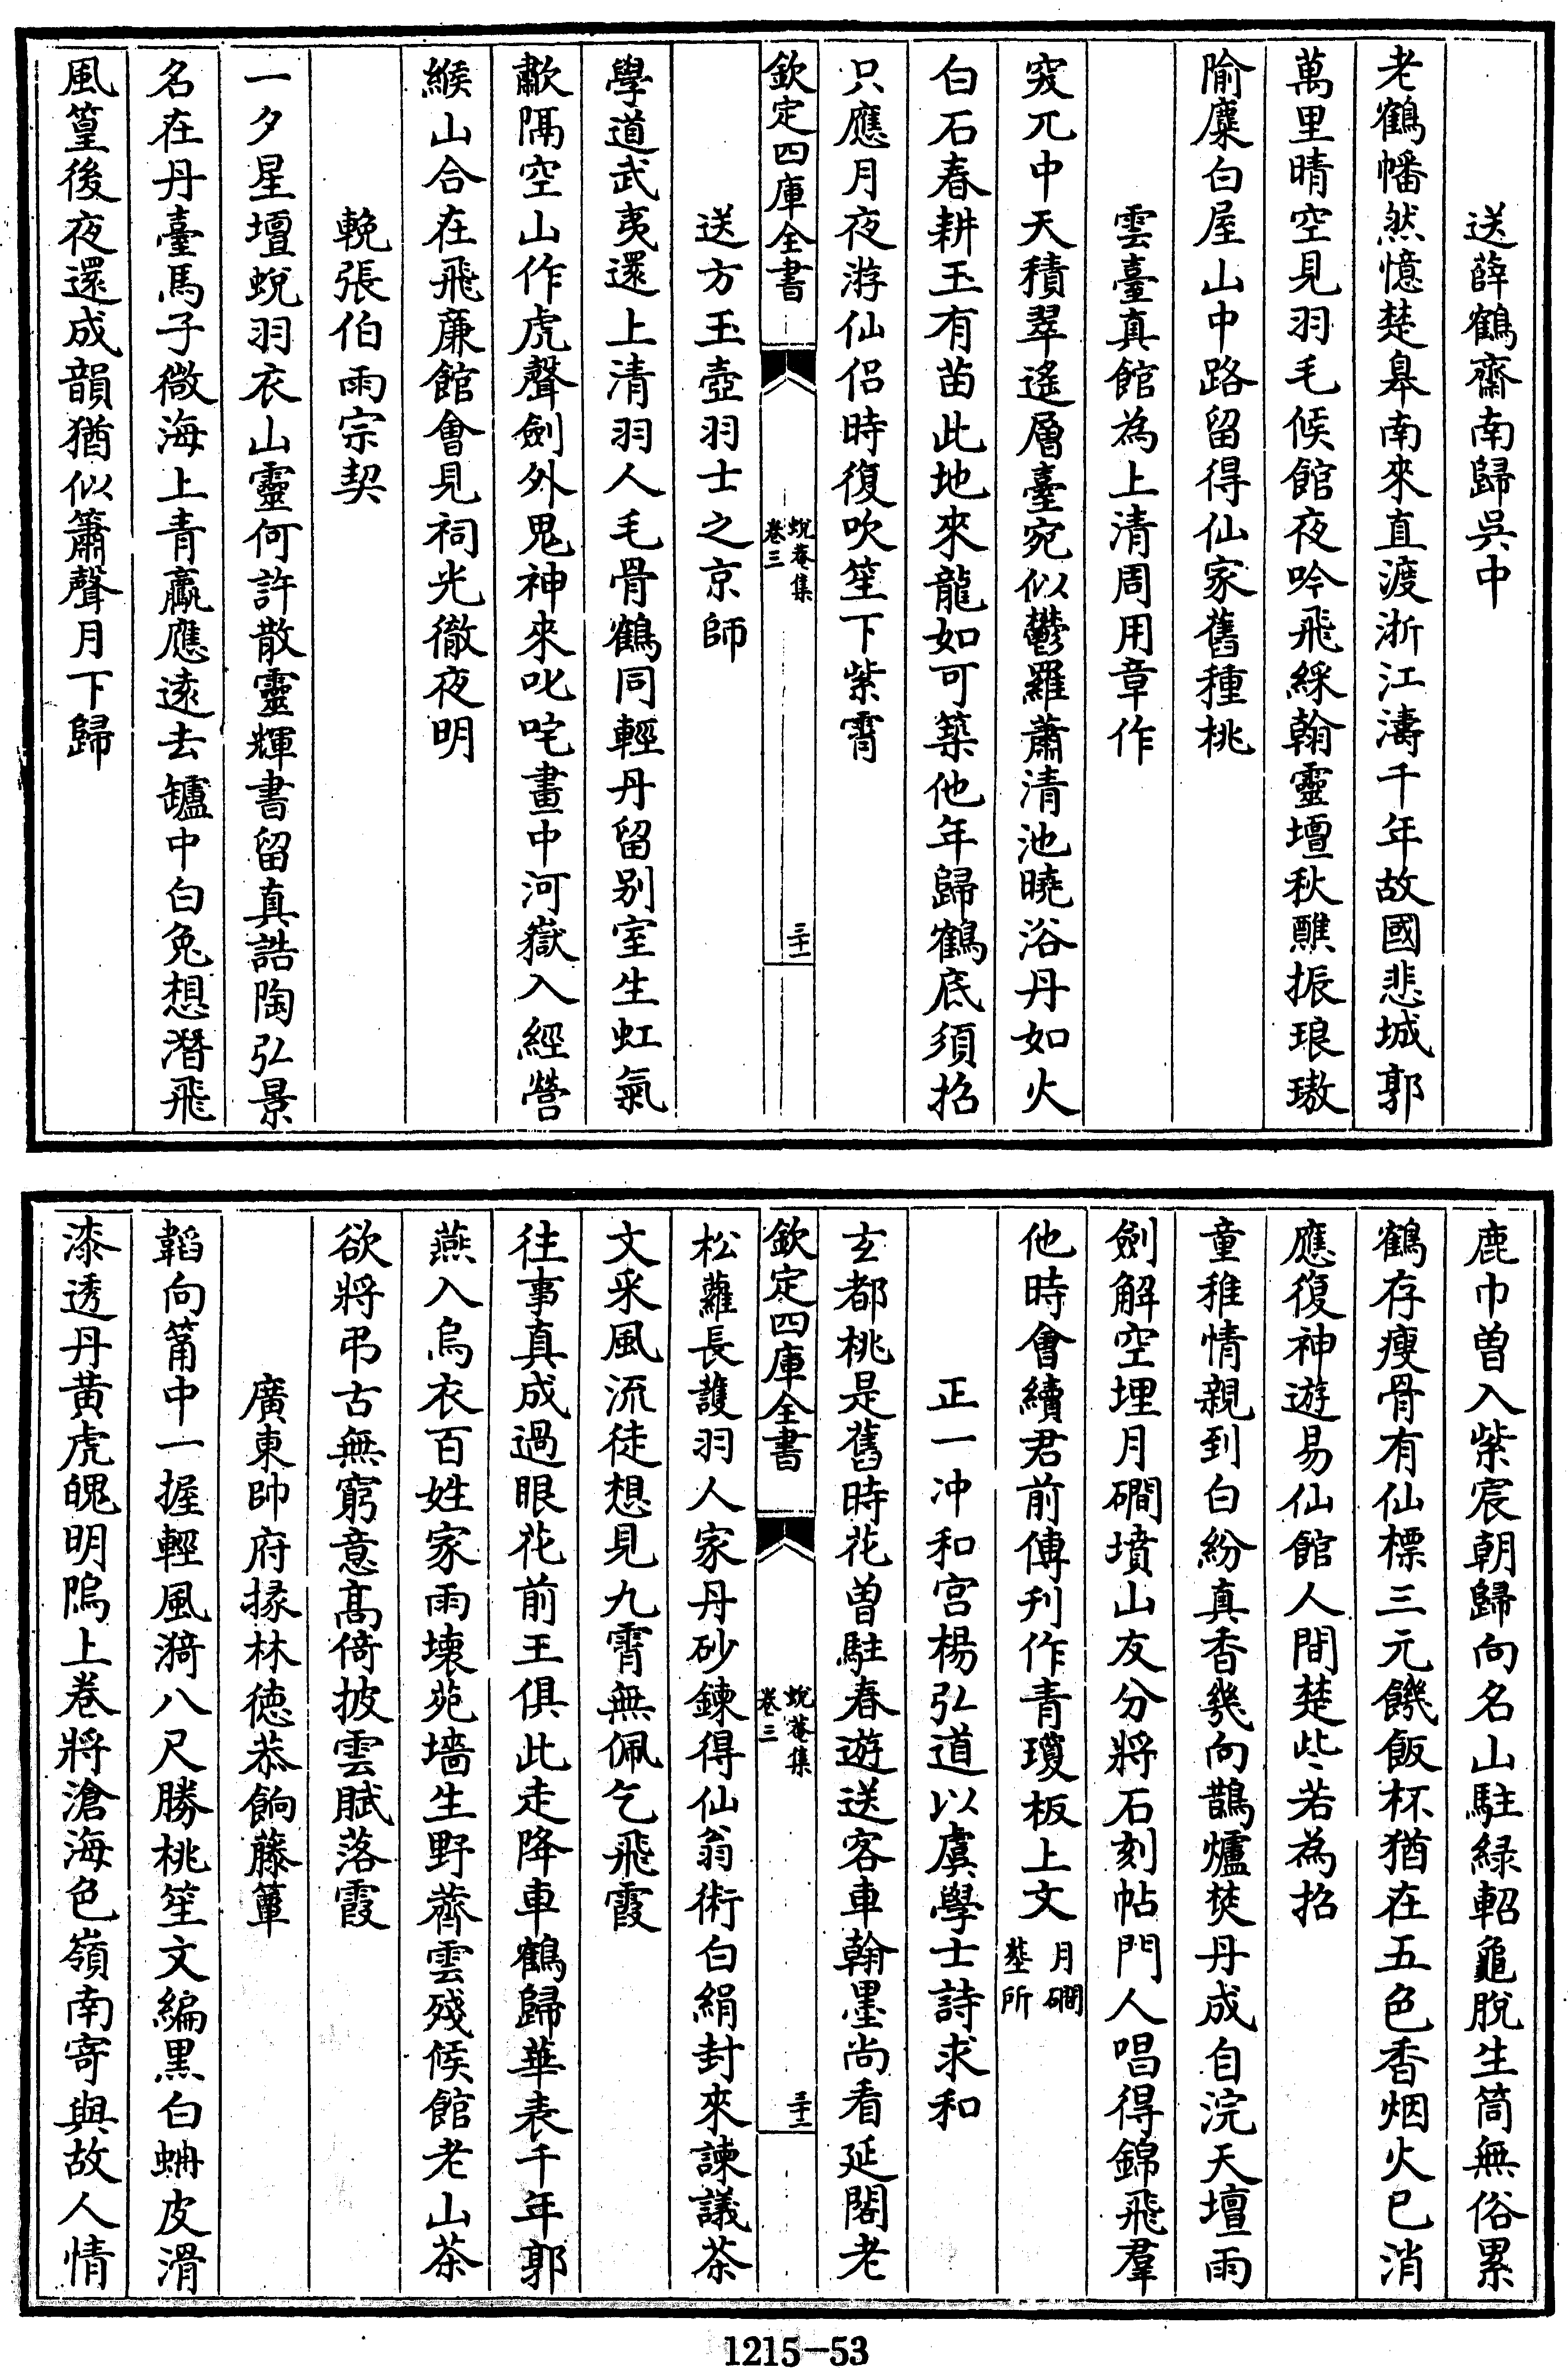 送薛鶴齋南歸吳中
老鶴幡然憶楚皋南來直渡浙江濤千年故國悲城郭
萬里晴空見羽毛候館夜吟飛綵翰靈壇秋醮振琅璈
隃麋白屋山中路留得仙家舊種桃
雲臺真館為上清周用章作
突兀中天積翠遙層臺宛似鬱羅蕭清池曉浴丹如火
白石春耕玉有苗此地來龍如可築他年歸鶴底須招
只應月夜游仙侣時復吹笙下紫霄
欽定四庫全書
蛻菴集
卷三
三十一
送方玉壺羽士之京師
學道武夷還上清羽人毛骨鶴同輕丹留别室生虹氣
歗隔空山作虎聲劍外鬼神來叱咤畫中河嶽入經營
緱山合在飛廉館會見祠光徹夜明
輓張伯雨宗契
一夕星壇蛻羽衣山靈何許散靈輝書留真誥陶弘景
名在丹臺馬子微海上青驘應遠去罏中白兔想潛飛
風篁後夜還成韻猶似簫聲月下歸
鹿巾曽入紫宸朝歸向名山駐緑軺龜脫生筒無俗累
鶴存瘦骨有仙標三元饑飯杯猶在五色香烟火已消
應復神遊易仙館人間楚些若為招
童稚情親到白紛真香幾向鵲爐焚丹成自浣天壇雨
劍解空埋月磵墳山友分將石刻帖門人唱得錦飛羣
他時會續君前傳刋作青瓊板上文
月磵
塟所
正一冲和宫楊弘道以虞學士詩求和
玄都桃是舊時花曽駐春遊送客車翰墨尚看延閣老
欽定四庫全書
蛻菴集
卷三
三十二
松蘿長護羽人家丹砂鍊得仙翁術白絹封來諫議茶
文采風流徒想見九霄無佩乞飛霞
往事真成過眼花前王俱此走降車鶴歸華表千年郭
燕入烏衣百姓家雨壊苑墻生野薺雲殘候館老山茶
欲將弔古無窮意髙倚披雲賦落霞
廣東帥府掾林徳恭餉藤簟
韜向筩中一握輕風漪八尺勝桃笙文編黒白蚺皮滑
漆透丹黃虎魄明隖上巻將滄海色嶺南寄與故人情
1215-53